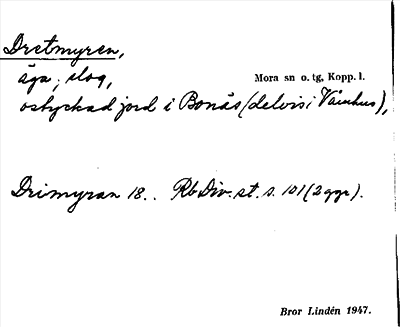 Dretmyren,
äga, slog,
Mora sn o. tg, Kopp. l.
ostyckad jord i Bonäs (delvis i Våmhus),
Drimyran 18.. Rb Div. st. s. 101 (2 ggr).
Bror Lindén 1947.